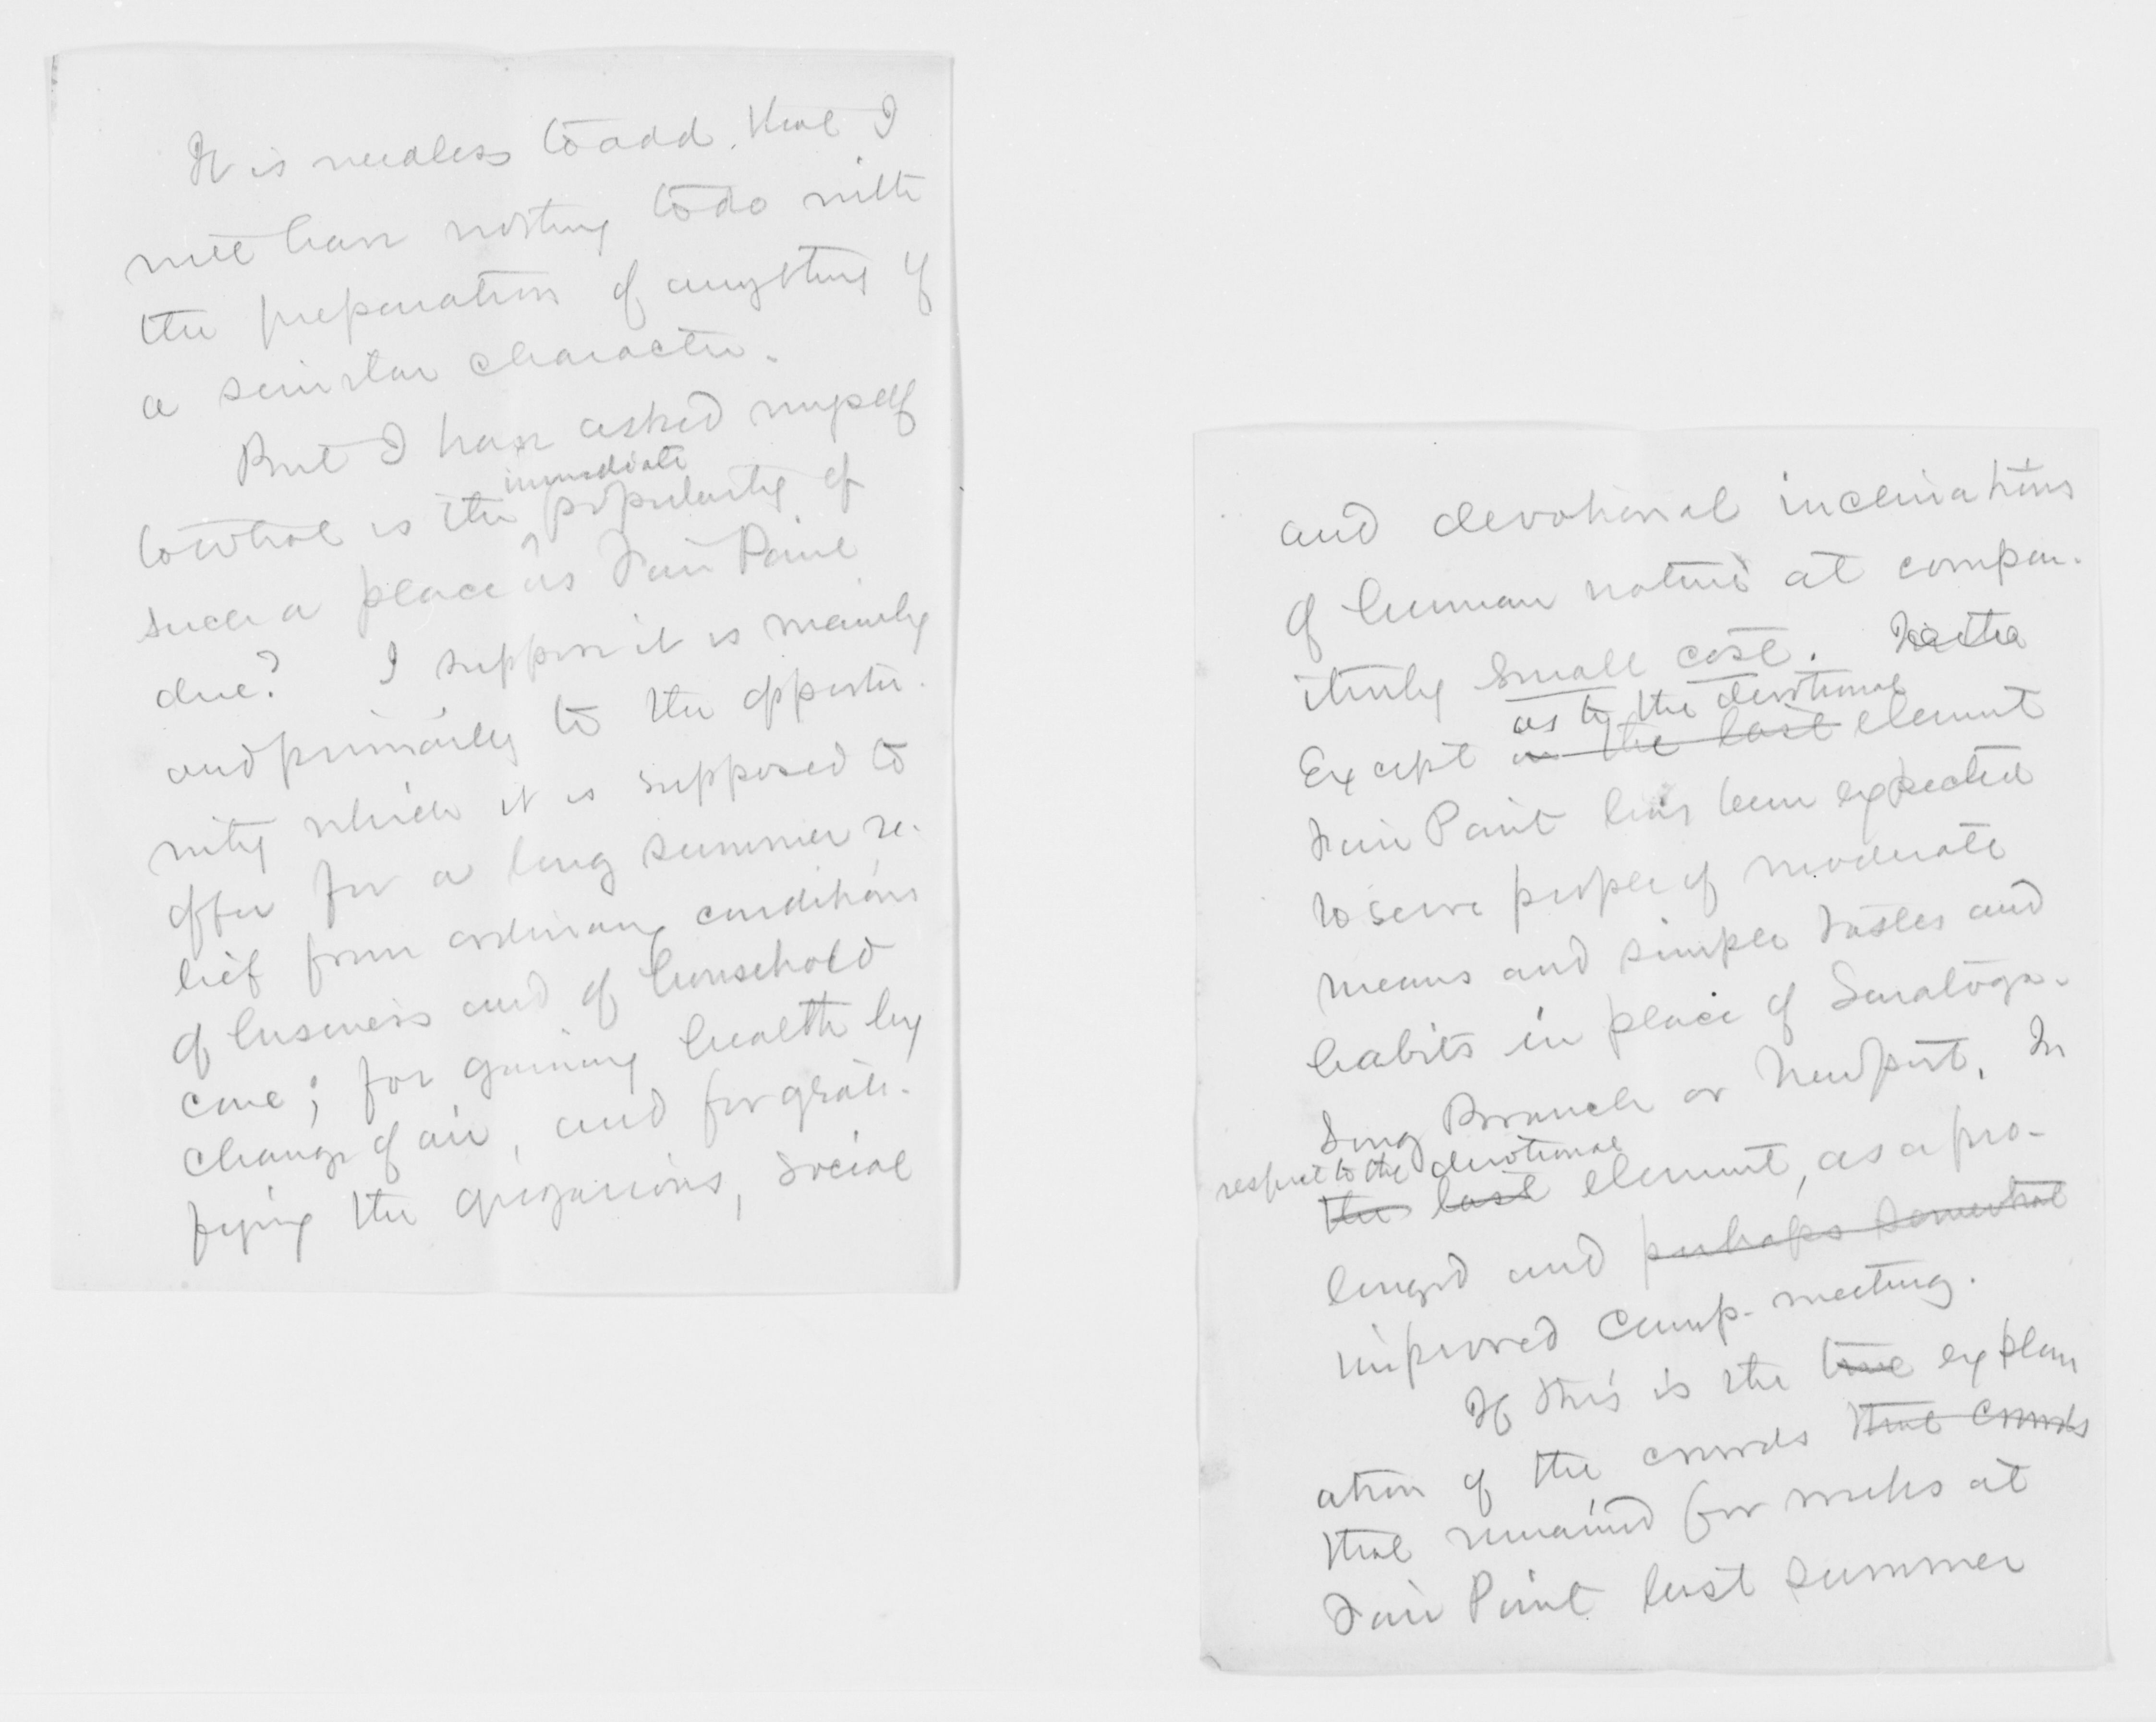 It is needless to add, that I
will have nothing to do with
the preparation of anything of
a similar character.
But I have asked myself
immediate
to what is the popularity of
such a place as Fair Point
due? I suppose it is mainly
and primarily to the opportu-
nity which it is supposed to
offer for a long summer re-
lief from ordinary conditions
of business and of household
care; for gaining health by
change of air, and for grati-
fying the gregarious, social
and devotional inclinations
of human nature at compar-
itively small cost.
as to the devotional
Except in the last element
Fair Point has been expected
to serve people of moderate
means and simple tastes and
habits in place of Saratoga-
Long Branch or Newport. In
respect to the devotional
the last element, as a pro-
longed and perhaps somewhat
improved camp-meeting.
If this is the true explan
ation of the crowds that crowds
that remained for weeks at
Fair Point last summer